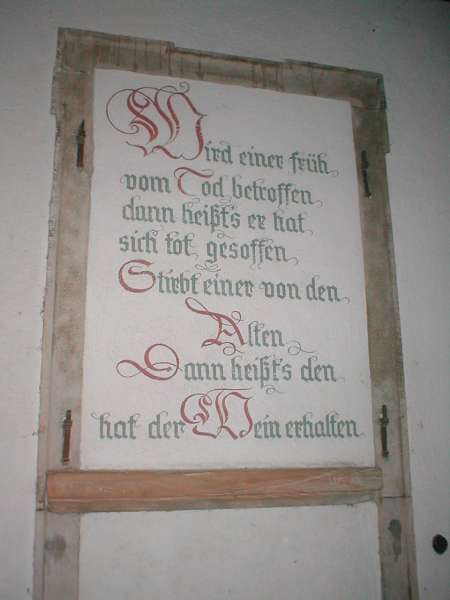 Wird einer früh
vom Tod betroffen
dann heißt's er hat
sich tot gesoffen
Stirbt einer von den
Alten
Dann heißt's den
hat der Wein erhalten